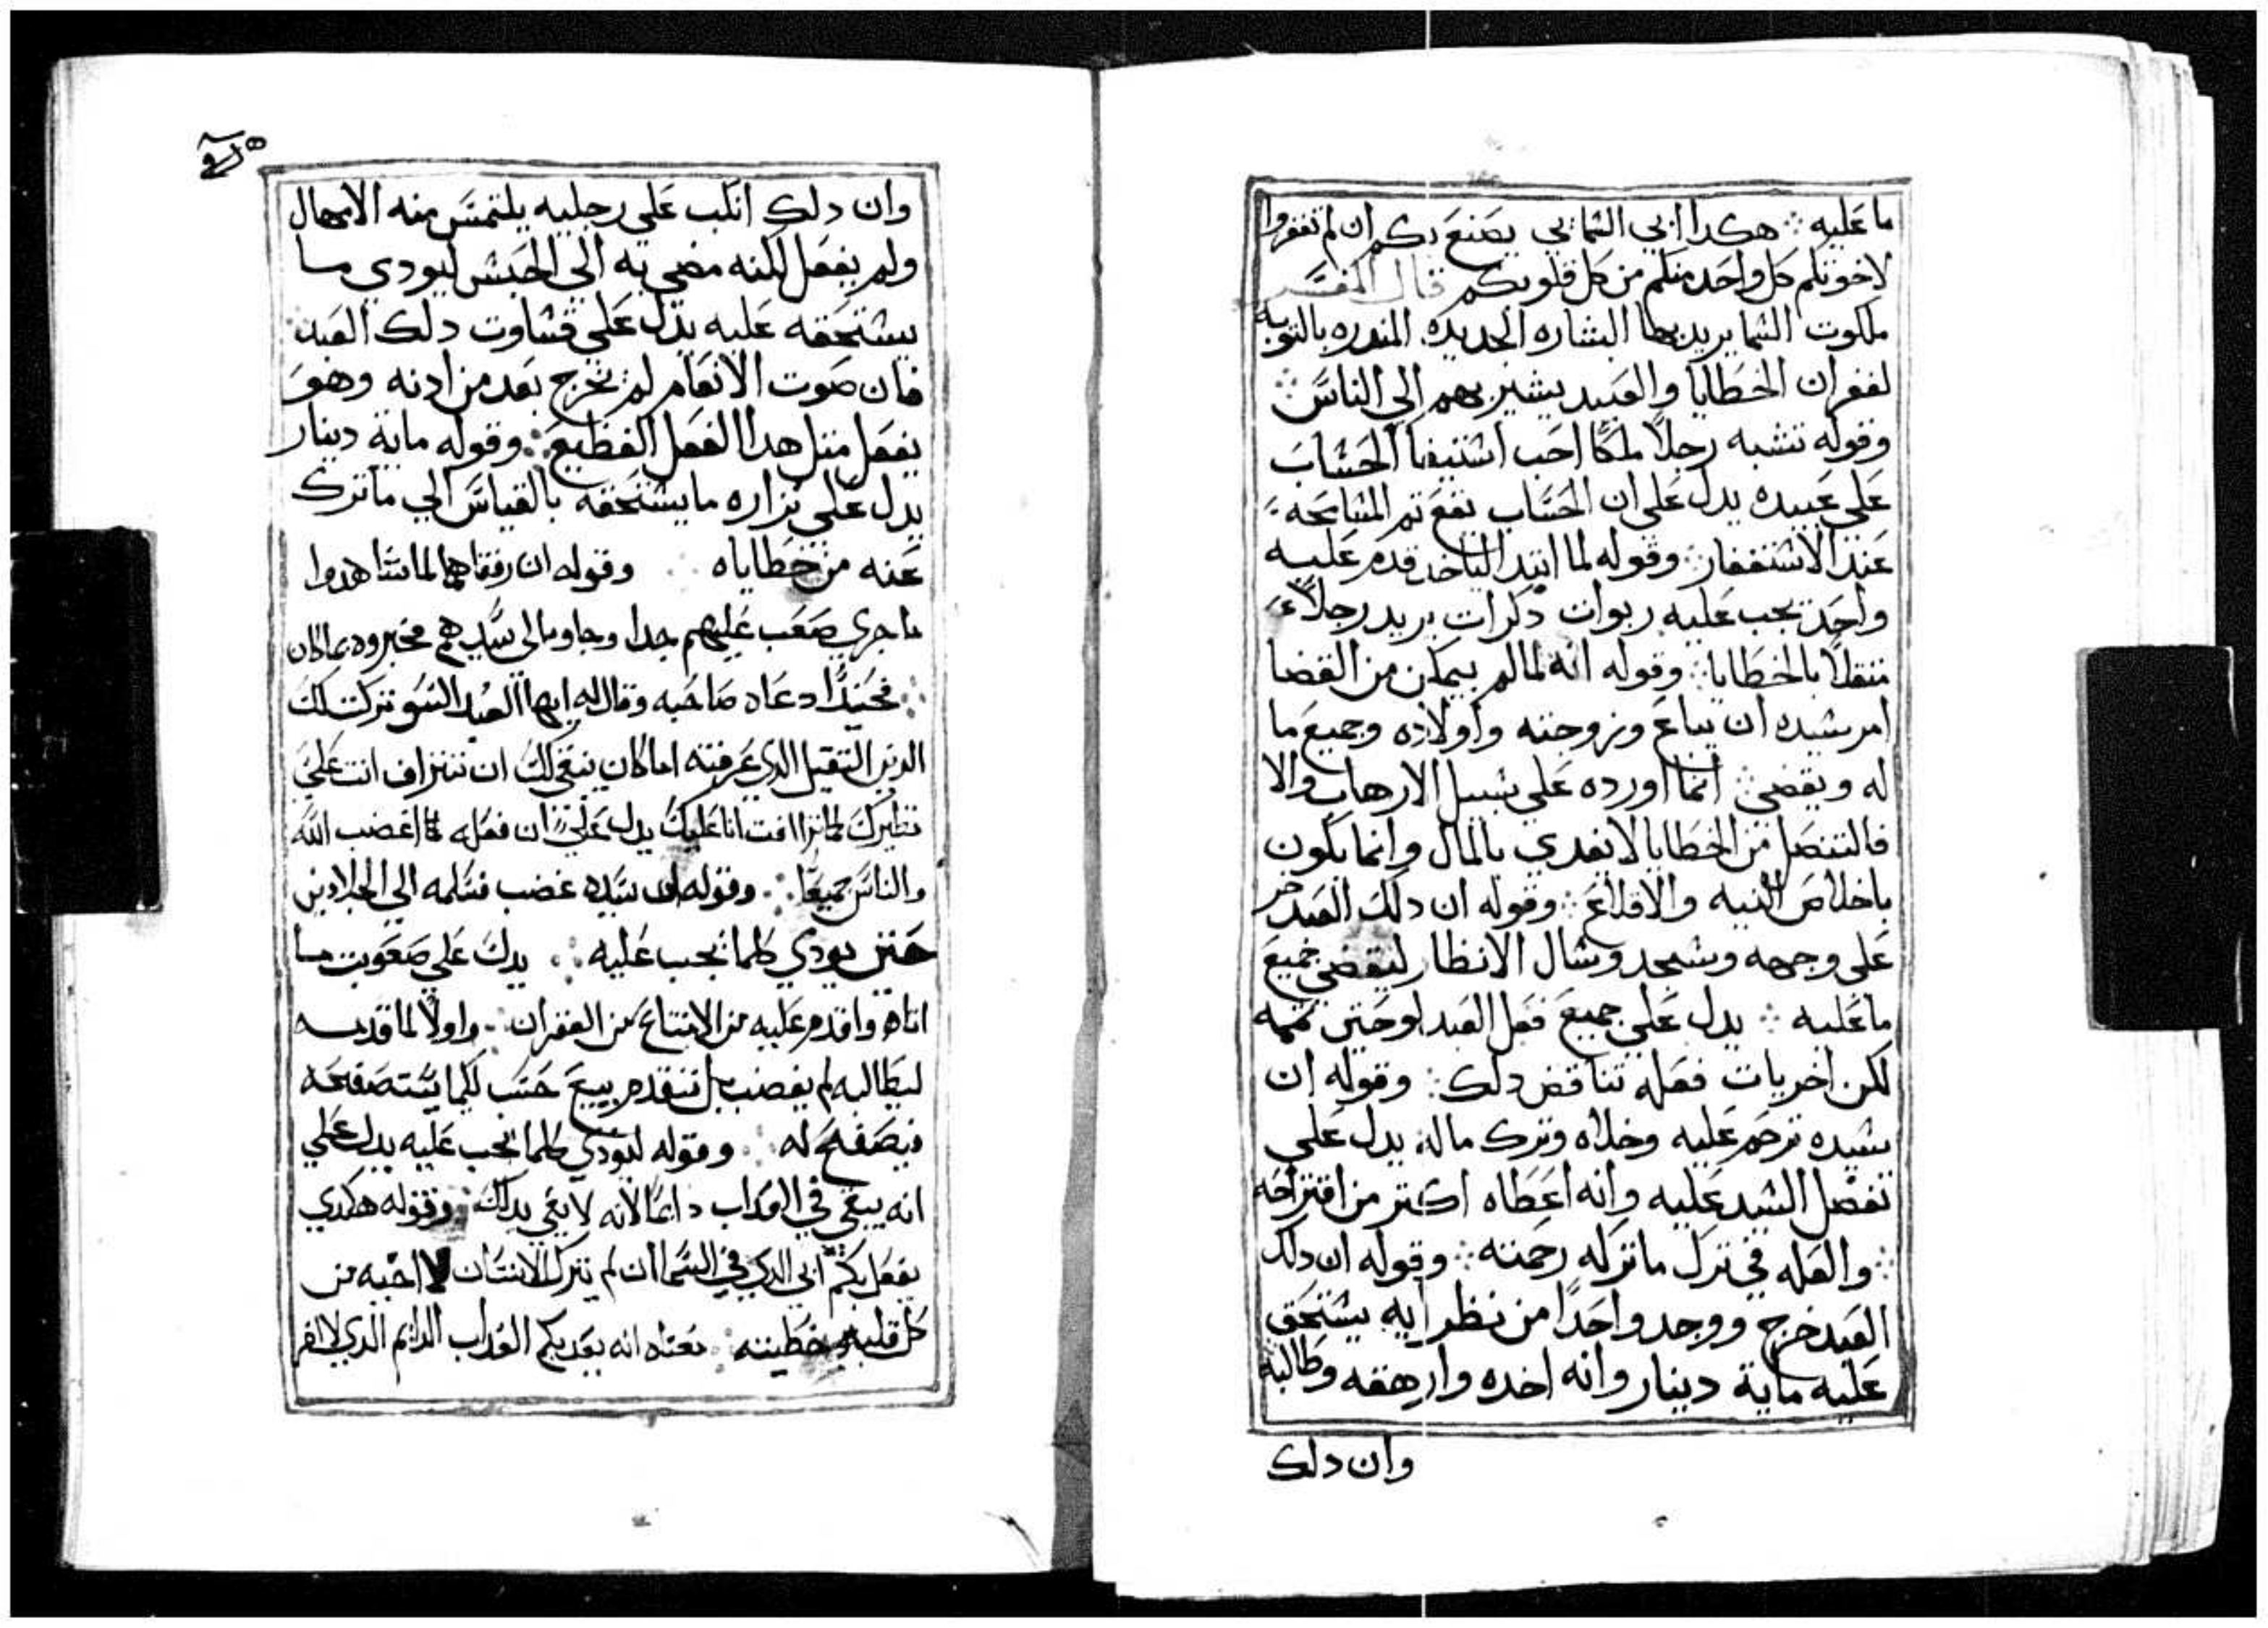 ما عليه ܀ هكدا ابي السمايي يصنع بكم ان لم تغفروا
لاخوتكم كل واحد منكم من كل قلوبكم قال المفسر
ملكوت السما يريد بها البشاره الجديده المندره بالتوبه
لغفران الخطايا والعبيد يشير بهم الي الناس ܀
وقوله تشبه رجلاً ملكاً احب استيفا الحساب
علي عبيده يدل علي ان الحساب يقع تم المسامحه
عند الاستغفار ܀ وقوله لما ابتدا لياخد قدم عليه
واحد يجب عليه ربوات دكرات يريد رجلاً
متقلاً بالخطايا ܀ وقوله انه لما لم يتمكن من القضا
امر سيده ان يباع وزوجته واولاده وجميع ما
له ويقضي ܀ انما اورده علي سبيل الارهاب والا
فالتنصل من الخطايا لا يفدي بالمال وانما يكون
باخلاص النيه والاقلاع ܀ وقوله ان دلك العبد خر
علي وجهه وسجد وسال الانظار ليقضي جميع
ما عليه ܀ يدل علي جميع فعل العبد لو حتي تممه
لكن اخريات فعله تناقض دلك ܀ وقوله ان
سيده ترحم عليه وخلاه وترك ماله يدل علي
تفضل السيد عليه وانه اعطاه اكتر من اقتراحه
܀ والعله في ترك ما تركه رحمته ܀ وقوله ان دلك
العبد خرج ووجد واحداً من نظرايه يستحق
عليه ماية دينار وانه اخده وارهقه وطالبه
وان دلك
وان دلك انكب علي رجليه يلتمس منه الامهال
ولم يفعل لكنه مضي به الي الحبس ليودي ما
يستحقه عليه يدل علي قساوت دلك العبد
فان صوت الانعام لم تخرج بعد من ادنه وهو
يفعل متل هدا الفعل الفظيع ܀ وقوله ماية دينار
يدل علي نزاره ما يستحقه بالقياس الي ما ترك
عنه من خطاياه ܀ وقوله ان رفقاهما لما شاهدوا
ما جري صعب عليهم جدا وجاو الي سيدهم فخبروه بما كان
܀ فحينيدا دعاه صاحبه وقال له ايها العبد السو تركت لك
الدين التقيل الدي عرفته اما كان ينبغي لك ان تتراف انت علي
نظيرك كما ترافت انا عليك يدل علي ان فعله مما اغضب الله
والناس جميعا ܀ وقوله ان سيده غضب فسلمه الي الجلادين
حتي يودي كلما يجب عليه ܀ يدل علي صعوبت ما
اتاه واقدم عليه من الامتناع من الغفران ܀ واولاً لما قدمه
ليطالبه لم يغضب بل تقدم ببيع حسب لكيما يستصفحه
فيصفح له ܀ وقوله ليودي كلما يجب عليه يدل علي
انه يبقي في العداب دايماً لانه لا يفي بدلك ܀ وقوله هكدي
يفعل بكم ابي الدي في السما ان لم يترك الانسان لاخيه من
كل قلبه خطيته ܀ معناه انه يعدبكم العداب الدايم الدي لا